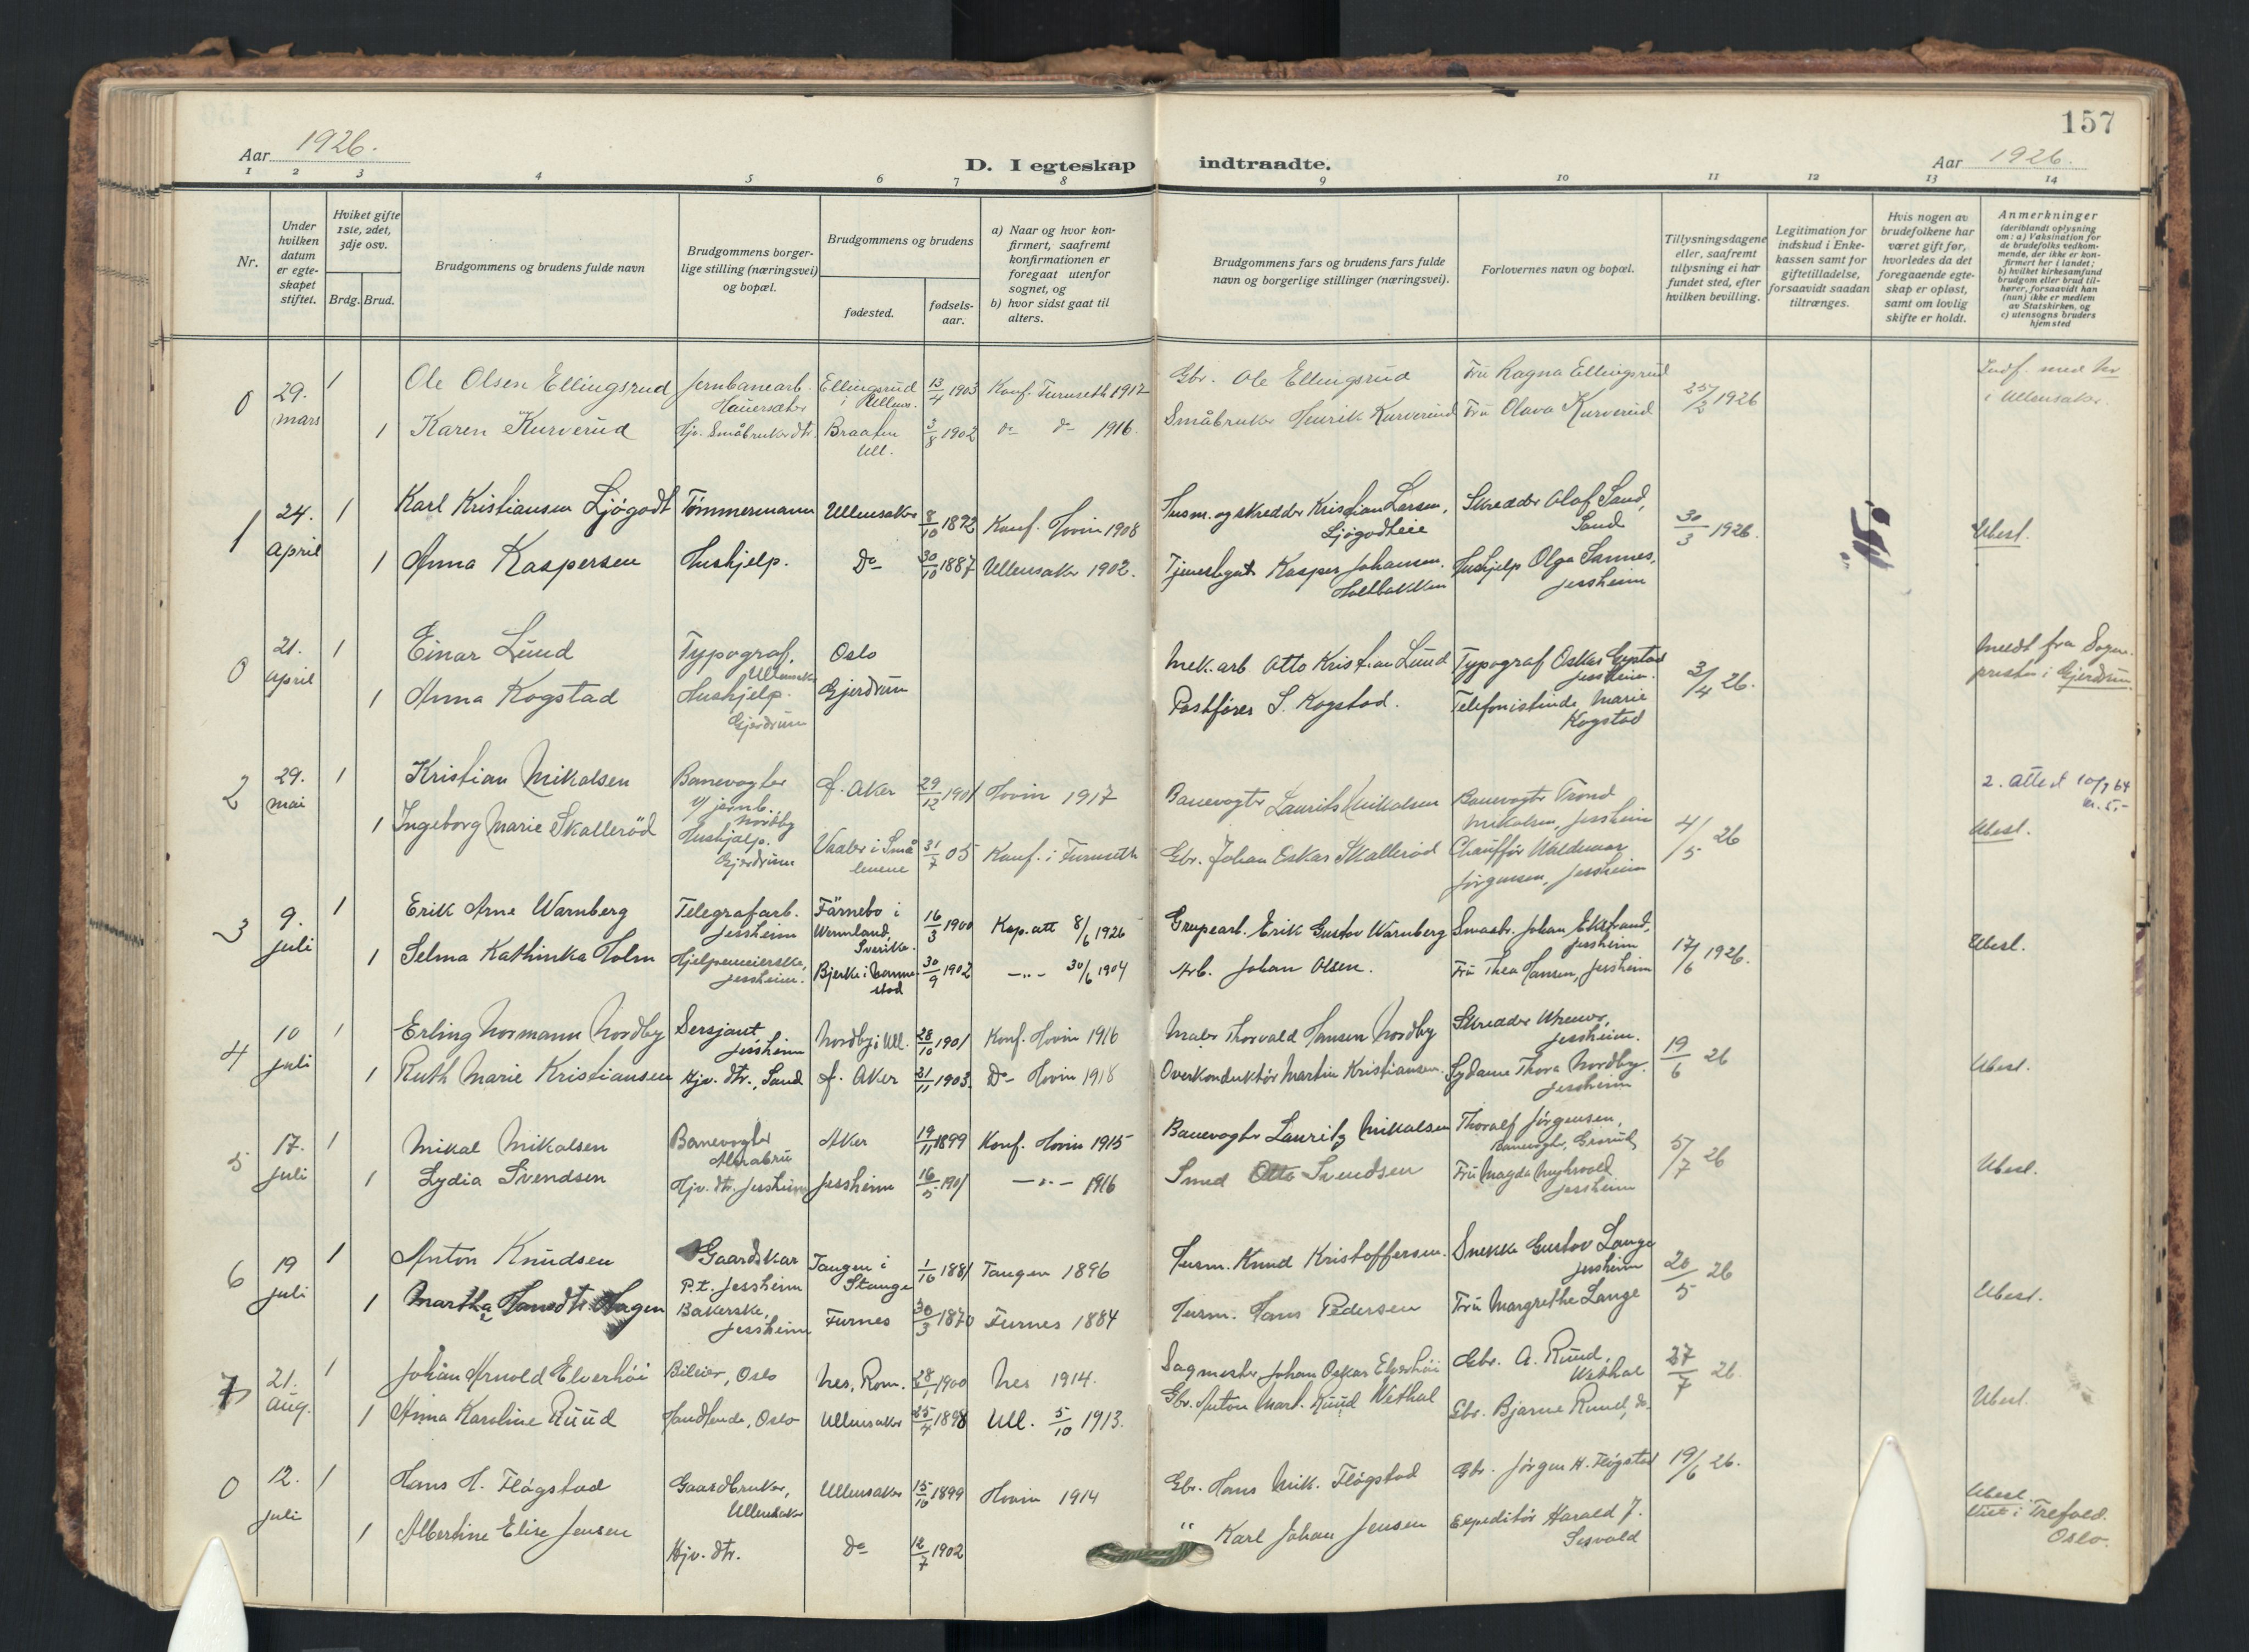 157
Aar 1926.
D. I egteskap indtraadte.
Aar 1926.
1 2 3 4 5 6 7 8 9 10 11 12 13 14
Nr.
Under
hvilken
datum
er egte-
skapet
stiftet.
Hviket gifte
1ste, 2det,
3dje osv.
Brdg. Brud.
Brudgommens og brudens fulde navn
Brudgommens borger-
lige stilling (næringsvei)
og bopæl.
Brudgommens og brudens
fødested.
fødsels-
aar.
a) Naar og hvor kon-
firmert, saafremt
konfirmationen er
foregaat utenfor
sognet, og
b) hvor sidst gaat til
alters.
Brudgommens fars og brudens fars fulde
navn og borgerlige stillinger (næringsvei).
Forlovernes navn og bopæl.
Tillysningsdagene
eller, saafremt
tillysning ei har
fundet sted, efter
hvilken bevilling.
Legitimation for
indskud i Enke-
kassen samt for
giftetilladelse,
forsaavidt saadan
tiltrænges.
Hvis nogen av
brudefolkene har
været gift før,
hvorledes da det
foregaaende egte-
skap er opløst,
samt om lovlig
skifte er holdt.
Anmerkninger
(deriblandt oplysning
om: a) Vaksination for
de brudefolks vedkom-
mende, der ikke er kon-
firmert her i landet;
b) hvilket kirkesamfund
brudgom eller brud til-
hører, forsaavidt han
(hun) ikke er medlem
av Statskirken, og
c) utensogns bruders
hjemsted
0 29. mars 1 Ole Olsen Ellingsrud Jernbanearb. Hauersæter Ellingsrud i Ullens. 13/4 1903 Konf. Furuseth 1917 Gbr. Ole Ellingsrud Fru Ragna Ellingsrud 25/2 1926 Indf. med Nr i Ullensaker.
1 Karen Kurverud Hjv. Småbruker dtr. Braaten Ull. 3/8 1902 do do 1916. Småbruker Henrik Kurverud Fru Olava Kurverud
1 24. april 1 Karl Kristiansen Ljøgodt Tømmermann Ullensaker 8/10 1892 Konf. Hovin 1908 Husm. og skredder Kristian Larsen, Ljøgodteie Skredder Olaf Sand, Sand 30/3 1926. Ubesl.
1 Anna Kaspersen Hushjelp. Do 30/10 1887 Ullensaker 1902. Kasper Johansen. Holtbakken Hushjelp Olga Sannes, Jessheim
0 21. april 1 Einar Lund Typograf, Ullensaker Oslo Mek. arb. Otto Kristian Lund Typograf Oskar Jessheim. 3/4 26. Meldt fra Sogne-
presten i Gjerdrum.
1 Anna Kogstad Hushjelp. Gjerdrum Gjerdrum Postfører S. Kogstad. Telefonistinde Marie Kogstad
2 29. mai 1 Kristian Mikalsen Banevogter v/ jernb. Nordby f. Aker 29/12 1901 Hovin 1917 Banevogter Laurits Mikalsen Banevogter Trond Mikalsen, Jessheim 4/5 26 2. attest 10/7 64 kr. 5,-
1 Ingeborg Marie Skallerød Hushjelp. Gjerdrum Vaaler i Små-
lenene 31/7 05 Konf. i Furuseth Gbr. Johan Oskar Skallerød Chauffør Waldemar Jørgensen, Jessheim Ubesl.
3 9. juli 1 Erik Arne Warnberg Telegrafarb. Jessheim Färnebo i Wermland, Sverike. 16/3 1900 Kop. att 8/6 1926 Grupearb. Erik Gustav Warnberg Smaabr. Johan Ekstrand, Jessheim 17/6 1926. Ubesl.
1 Selma Kathinka Holm Hjelpemeierske, Jessheim. Bjerke i Nanne-
stad 30/9 1902 -"- 30/6 1904 Arb. Johan Olsen. Fru Thea Hansen, Jessheim
4 10 juli 1 Erling Normann Nordby Sersjant Jessheim Nordby i Ull. 28/10 1901 Konf. Hovin 1916 Maler Thorvald Hansen Nordby Skredder Jessheim. 19/6 26 Ubesl.
1 Ruth Marie Kristiansen Hjv. dtr., Sand f. Aker 21/11 1903. Do Hovin 1918 Overkonduktør Martin Kristiansen. Sydame Thora Nordby. Jessheim
5 17. juli 1 Mikal Mikalsen Banevogter Alnabru Aker 19/11 1899 Konf. Hovin 1915 Banevogter Lauritz Mikalsen Thoralf Jørgensen, Banevogter, Grorud 5/7 26 Ubesl.
1 Lydia Svendsen Hjv. dtr. Jessheim Jessheim 16/5 1901 -"- 1916 Smed Otto Svendsen Fru Magda Myhrvold Jessheim
6 19 juli 1 Anton Knudsen Gaardskar P.t. Jessheim Tangen i Stange 1/10 1881 Tangen 1896 Husm. Knud Kristoffersen. Snekker Gustav Lange Jessheim 20/5 26 Ubesl.
1 Martha Hansdtr. Hagen Bakerske, Jessheim Furnes 30/3 1870 Furnes 1884 Husm. Hans Pedersen Fru Margrethe Lange
7 21. aug. 1 Johan Arnold Elverhöi Bileier, Oslo Nes, Rom. 1900 Nes 1914. Sagmester Johan Oskar Elverhöi Gbr. A. Ruud, Wethal 27/7 26. Ubesl.
1 Anna Karoline Ruud Handlende, Oslo Ullensaker 25/4 1898 Ull. 5/10 1913. Gbr. Anton Mart. Ruud Wethal Gbr. Bjarne Ruud, do.
0 12. juli 1 Hans H. Fløgstad Gaardbruker, Ullensaker Ullensaker 15/10 1899 Hovin 1914 Gbr. Hans Mik. Fløgstad Gbr. Jørgen H. Fløgstad 19/6 26. Ubesl.
i Trefold. Oslo.
1 Albertine Elise Jensen Hjv. dtr. do 12/7 1902 " Karl Johan Jensen Expeditør Harald J. Sesvold